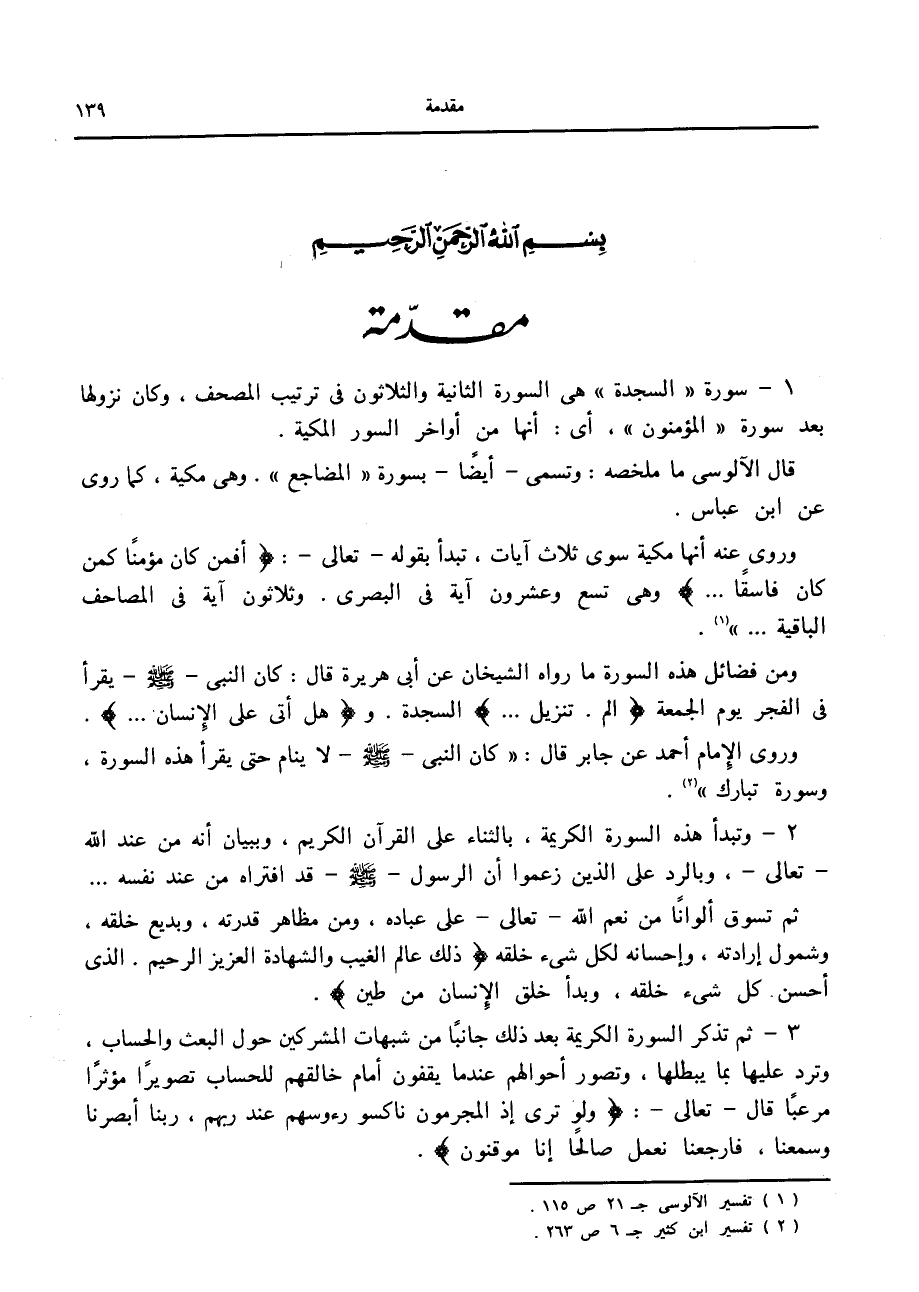 مقدمة ١٣٩
بسم الله الرحمن الرحيم
مقدّمة
١ – سورة « السجدة » هى السورة الثانية والثلاثون فى ترتيب المصحف ، وكان نزولها
بعد سورة « المؤمنون » ، أى : أنها من أواخر السور المكية .
قال الآلوسى ما ملخصه : وتسمى – أيضًا – بسورة « المضاجع » . وهى مكية ، كما روى
عن ابن عباس .
وروى عنه أنها مكية سوى ثلاث آيات ، تبدأ بقوله – تعالى – : ﴿ أفمن كان مؤمنًا كمن
كان فاسقًا ... ﴾ وهى تسع وعشرون آية فى البصرى . وثلاثون آية فى المصاحف
الباقية ... »(١) .
ومن فضائل هذه السورة ما رواه الشيخان عن أبى هريرة قال : كان النبى – ﷺ – يقرأ
فى الفجر يوم الجمعة ﴿ الم . تنزيل ... ﴾ السجدة . و ﴿ هل أتى على الإنسان ... ﴾ .
وروى الإمام أحمد عن جابر قال : « كان النبى – ﷺ – لا ينام حتى يقرأ هذه السورة ،
وسورة تبارك »(٢) .
٢ – وتبدأ هذه السورة الكريمة ، بالثناء على القرآن الكريم ، وببيان أنه من عند الله
– تعالى – ، وبالرد على الذين زعموا أن الرسول – ﷺ – قد افتراه من عند نفسه ...
ثم تسوق ألوانًا من نعم الله – تعالى – على عباده ، ومن مظاهر قدرته ، وبديع خلقه ،
وشمول إرادته ، وإحسانه لكل شىء خلقه ﴿ ذلك عالم الغيب والشهادة العزيز الرحيم . الذى
أحسن كل شىء خلقه ، وبدأ خلق الإنسان من طين ﴾ .
٣ – ثم تذكر السورة الكريمة بعد ذلك جانبًا من شبهات المشركين حول البعث والحساب ،
وترد عليها بما يبطلها ، وتصور أحوالهم عندما يقفون أمام خالقهم للحساب تصويرًا مؤثرًا
مرعبًا قال – تعالى – : ﴿ ولو ترى إذ المجرمون ناكسو رءوسهم عند ربهم ، ربنا أبصرنا
وسمعنا ، فارجعنا نعمل صالحًا إنا موقنون ﴾ .
( ١ ) تفسير الآلوسى جـ ٢١ ص ١١٥ .
( ٢ ) تفسير ابن كثير جـ ٦ ص ٢٦٣ .